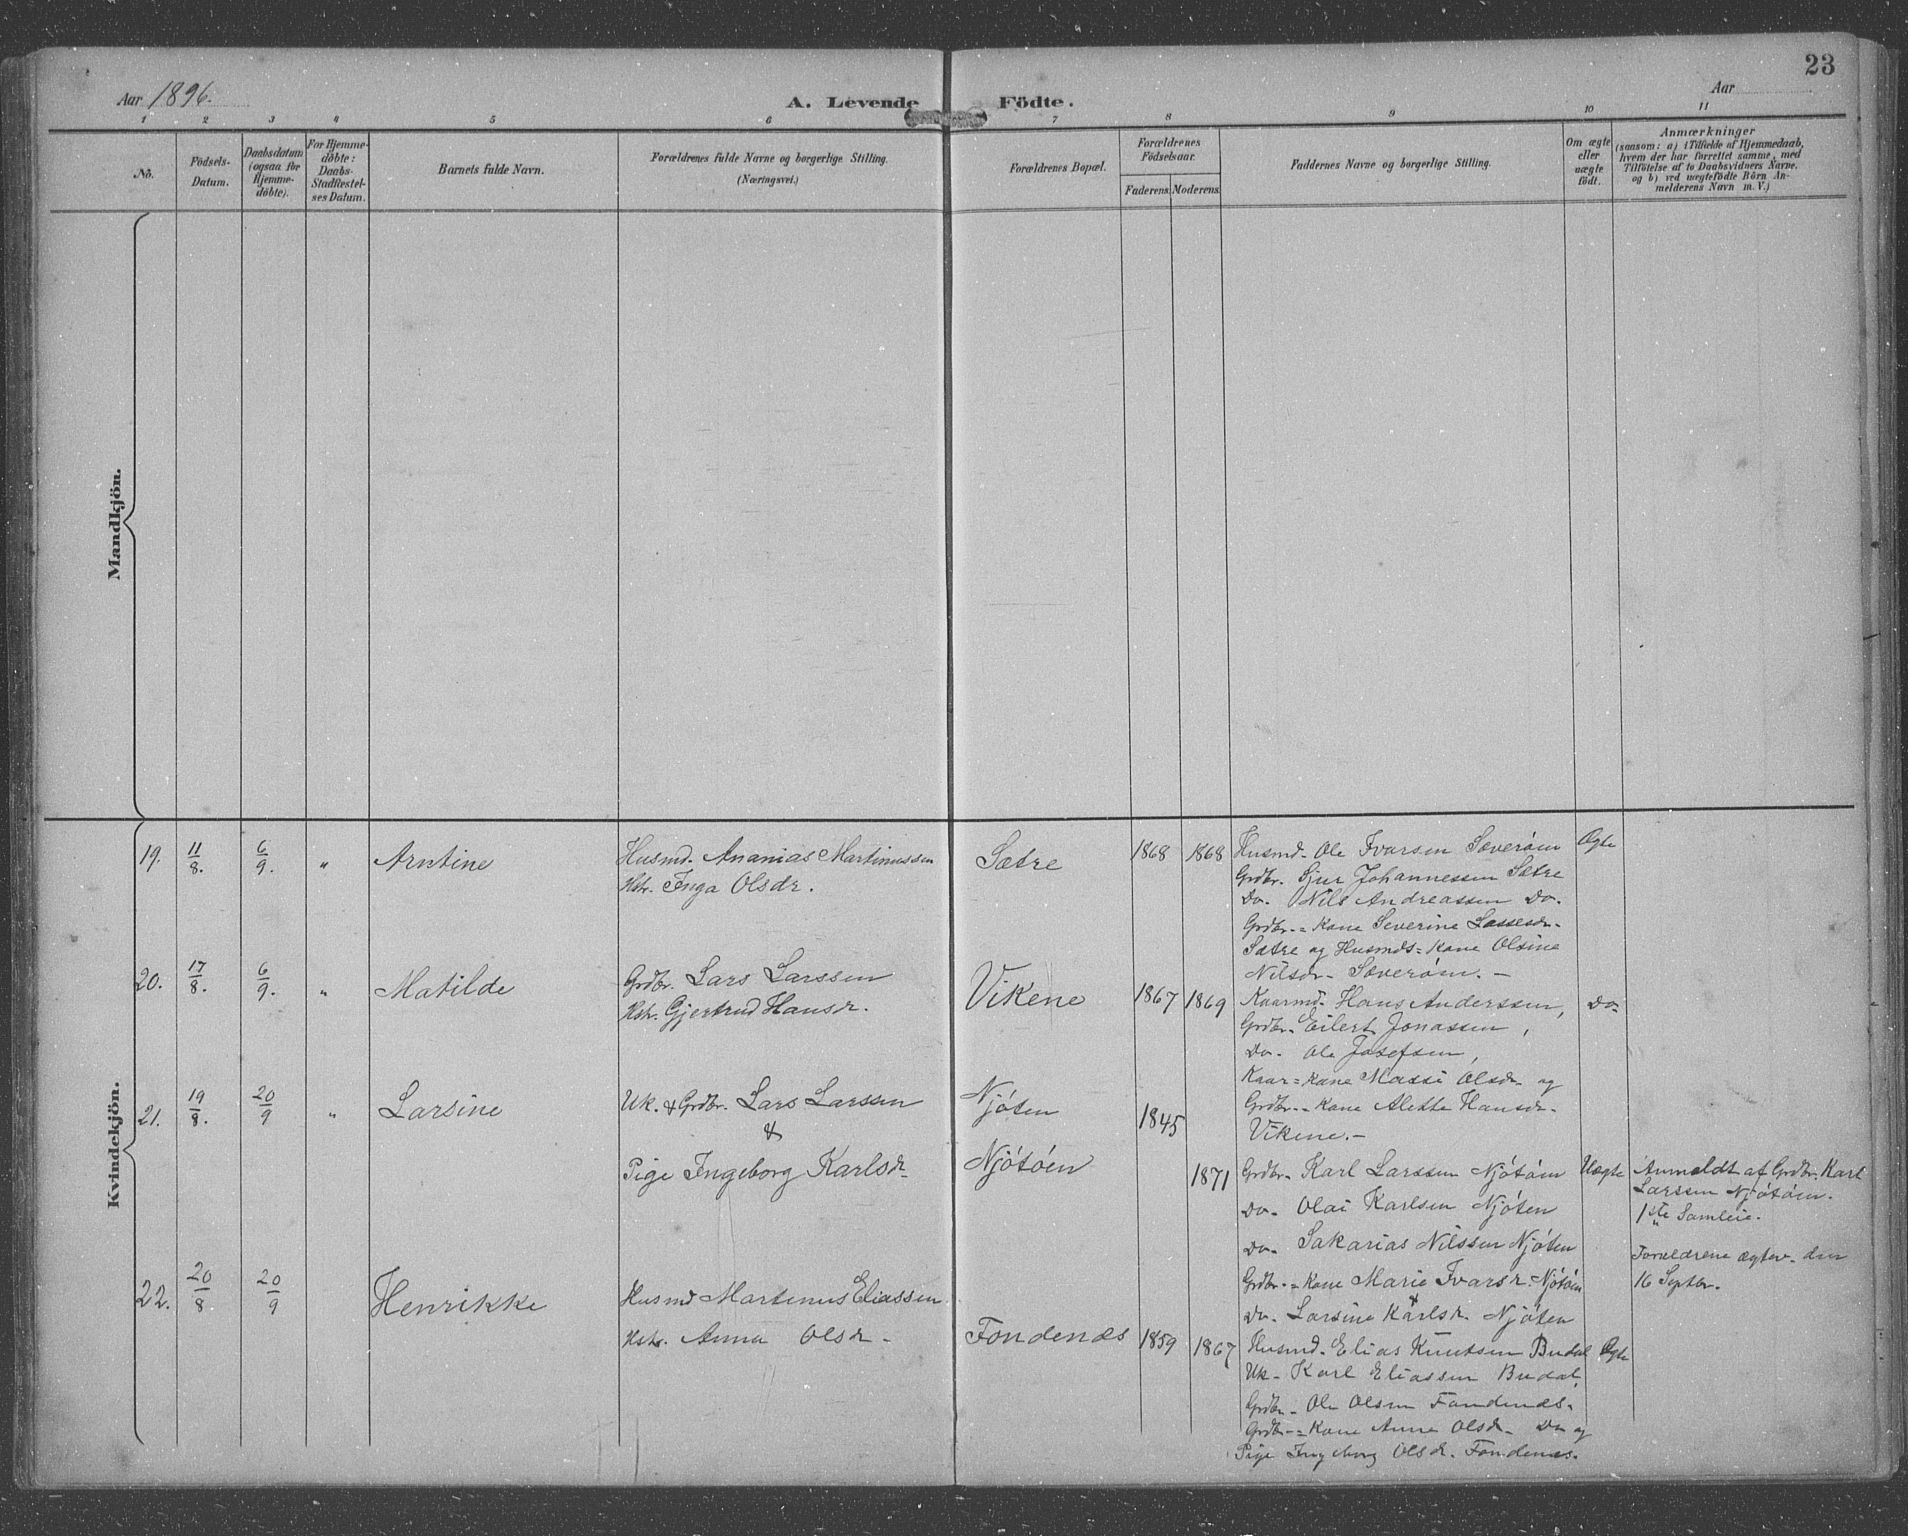 23
Aar 1896.
A. Levende Födte.
Aar
1 2 3 4 5 6 7 8 9 10 11
No.
Födsels-
Datum.
Daabsdatum
(ogsaa for
Hjemme-
döbte).
For Hjemme-
döbte:
Daabs-
Stadfæstel-
ses Datum.
Barnets fulde Navn.
Forældrenes fulde Navne og borgerlige Stilling.
(Næringsvei.)
Forældrenes Bopæl.
Forældrenes
Födselsaar.
Faderens. Moderens.
Faddernes Navne og borgerlige Stilling.
Om ægte
eller
uægte
födt.
Anmærkninger
(saasom: a) i Tilfælde af Hjemmedaab,
hvem der har forrettet samme, med
Tilföielse af to Daabsvidners Navne.
og b) ved uægtefödte Börn An-
melderens Navn m. V.)
Mandkjön.
Kvindekjön.
19. 11/8. 6/9. " Arntine
Husmd. Ananias Martinussen
Hstr. Inga Olsdr.
Sætre 1868 1868
Husmd. Ole Ivarsen Sæveröm
Grdbr. Sjur Johannessen Sætre
Do. Nils Andreassen Do.
Grdbr.=Kone Severine Lassesdr.
Sætre og Husmds=Kone Olsine
Nilsdr. Sæveröm.-
Ægte
20. 17/8. 6/9. " Matilde
Grdbr. Lars Larssen
Hstr. Gjertrud Hansdr.
Vikene 1867 1869
Kaarmd. Hans Anderssen,
Grdbr. Eilert Jonassen,
Do. Ole Josefsen,
Kaar=Kone Massi Olsdr. og
Grdbr.-Kone Alette Hansdr.
Vikene.-
Do.
21. 19/8. 20/9 " Larsine
Uk. & Grdbr. Lars Larssen
&
Pige Ingeborg Karlsdr.
Njöten
Njötöen
1845
1871
Grdbr. Karl Larssen Njötöen
Do. Olai Karlsen Njöten
Do. Sakarias Nilssen Njöten
Grdbr.=Kone Marie Ivarsdr. Njötöen
&
Do. Larsine Karlsdr. Njöten
Uægte
Anmeldt af Grdbr. Karl
Larssen Njötöen.
1ste Samleie.
Forældrene ægtev. den
16 Septbr.
22. 20/8. 20/9 Henrikke
Husmd Martinus Eliassen
Hstr. Anna Olsdr.
Fondenæs 1859 1867
Husmd. Elias Knutsen Budal
Uk. Karl Eliassen Budal,
Grdbr. Ole Olsen Fondenæs.
Grdbr.=Kone Anne Olsdr. Do og
Pige Ingeborg Olsdr. Fondenæs.
Ægte